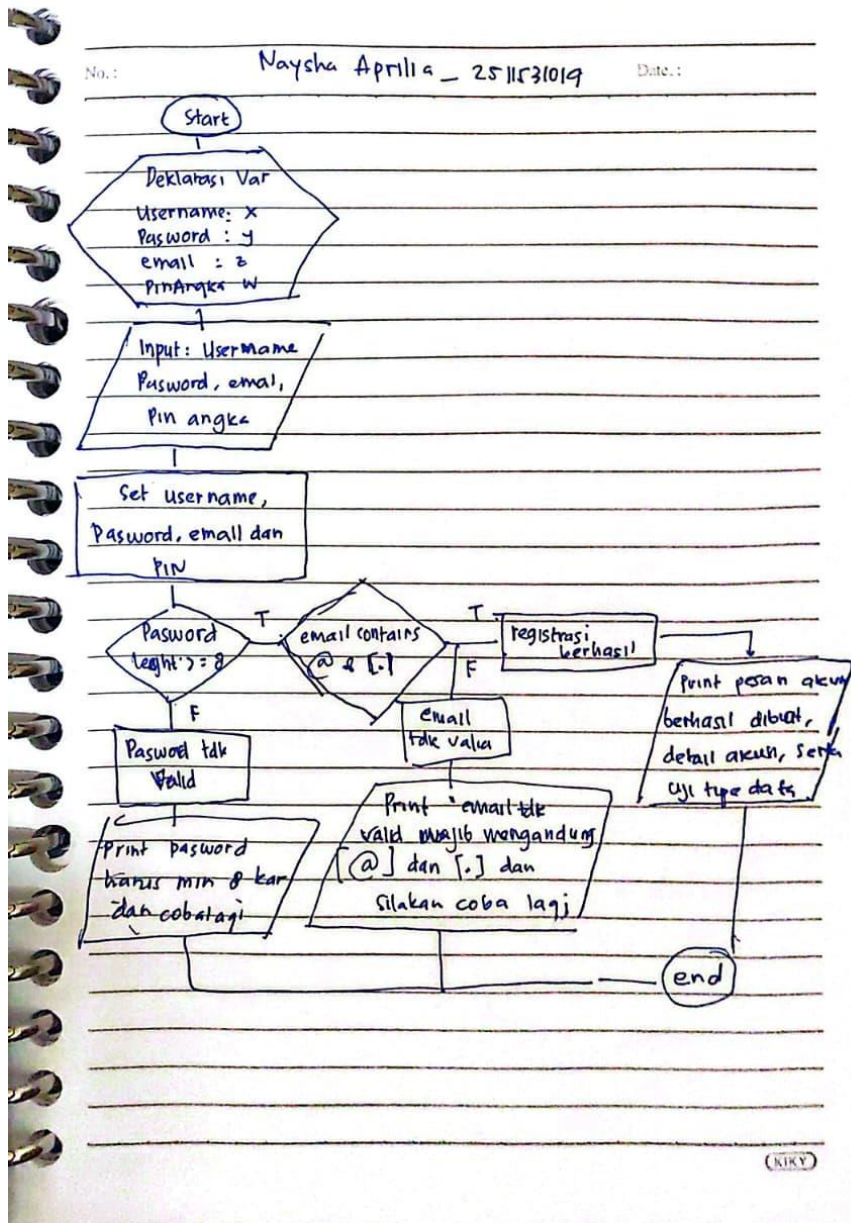 No.:
Naysha Aprilia _ 2511531019
Date.:
Start
Deklarasi Var
Username: X
Pasword : y
email : z
PinAngka W
Input: Username
Pasword, emal,
Pin angka
Set username,
Pasword, email dan
PIN
Pasword
leght > = 8
T
email contains
@ & [.]
T
registrasi
berhasil
F
F
Pasword tdk
Valid
email
tdk valid
Print pesan akun
berhasil dibuat,
detail akun, serta
uji tipe data
Print pasword
harus min 8 kar
dan coba lagi
Print email tdk
valid wajib mengandung
[@] dan [.] dan
silakan coba lagi
end
KIKY